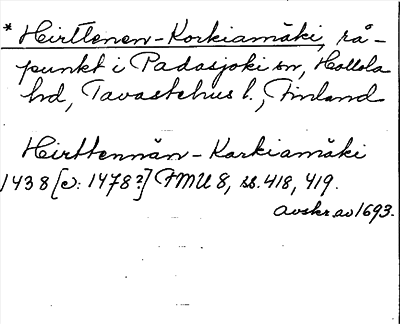 * Hirttenen-Korkiamäki, rå-
punkt i Padasjoki sn, Hollola
hd, Tavastehus l., Finland
Hirttennän-Karkiamäki
1438 [e: 1478?] FMU 8, ss. 418, 419.
Avskr. av 1693.